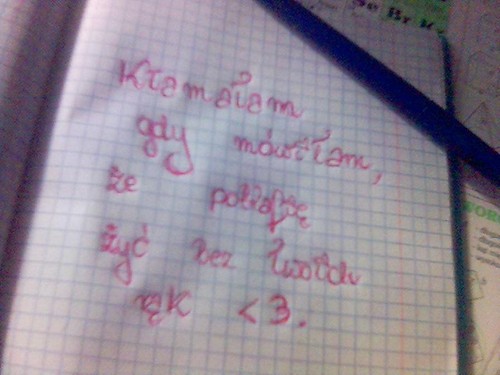 Kłamałam
gdy mówiłam,
że potrafię
żyć bez Twoich
rąk <3.